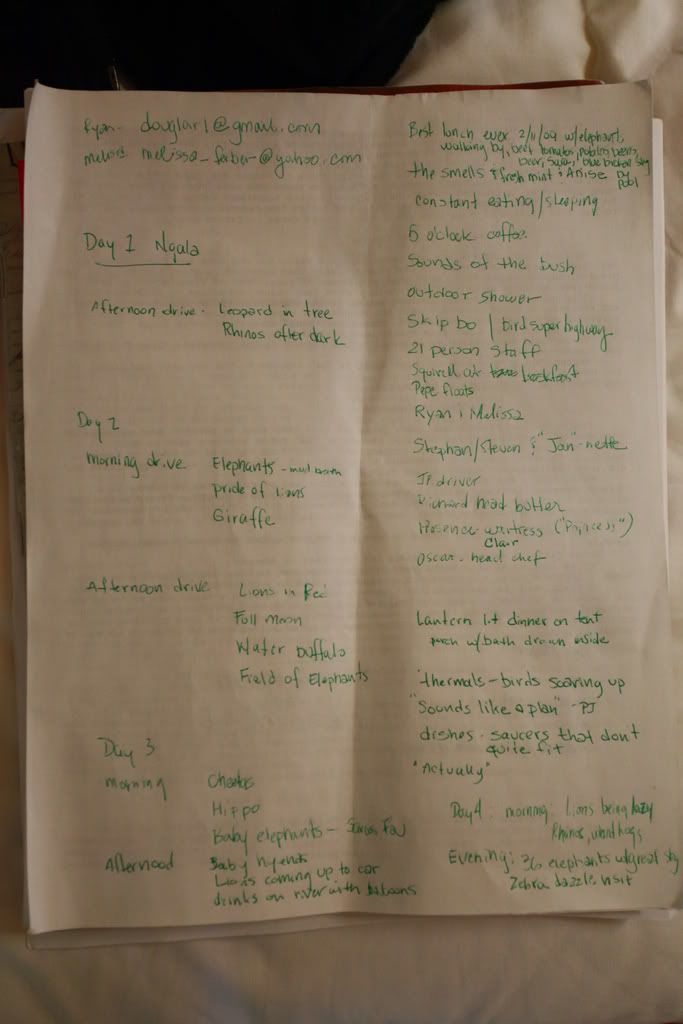 Ryan- douglar1@gmail.com
melissa_ferber@yahoo.com
Day 1 Ngala
Afternoon drive - Leopard in tree
Rhinos after dark
Day 2
morning drive Elephants - mud bath
pride of lions
Giraffe
Afternoon drive Lions in Red
Full moon
Water buffalo
Field of Elephants
Day 3
morning Cheetas
Hippo
Baby elephants -
Afternood Baby hyenas
Lions coming up to car
drinks on river with baboons
Best lunch ever 2/11/09 w/elephants
walking by, beef tomatos,
beer, blue sky
the smells & fresh mint & Anise by
constant eating/sleeping
5 o'clock coffee
Sounds of the bush
outdoor shower
Skip bo / bird superhighway
21 person staff
Squirell at breakfast
Pepe floats
Ryan & Melissa
Stephan/Steven & "Jan"-nette
JP driver
Richard head butler
waitress ("Princess")
Clair
Oscar - head chef
Lantern lit dinner on tent
porch w/bath drawn inside
thermals - birds soaring up
"Sounds like a plan" - PJ
dishes - saucers that don't
quite fit
"Actually"
Day 4: morning: Lions being lazy
Rhinos, warthogs
Evening: 36 elephants w/great sky
Zebra dazzle visit